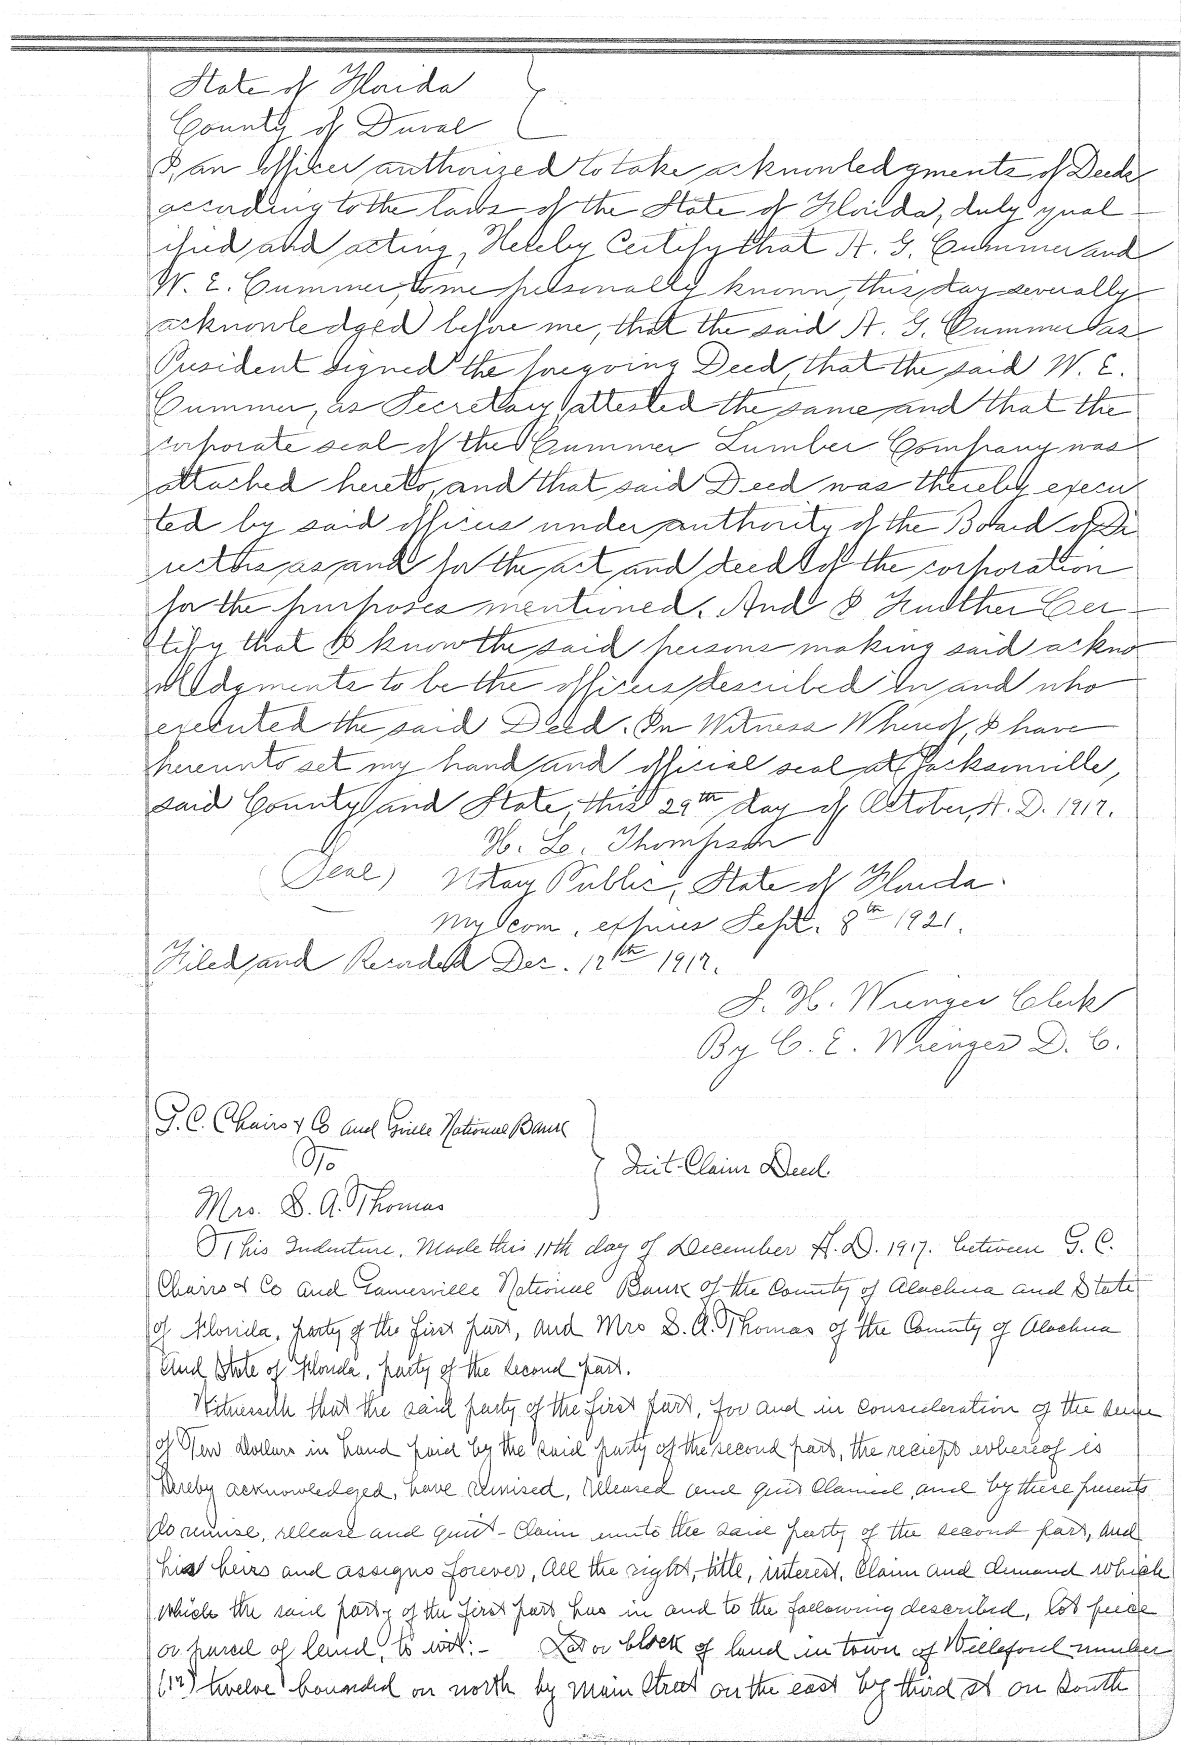 State of Florida
County of Duval
I, an officer authorized to take acknowledgments of Deeds
according to the laws of the State of Florida, duly qual-
ified and acting, Hereby Certify that A. G. Cummer and
W. E. Cummer, to me personally known, this day severally
acknowledged before me, that the said A. G. Cummer as
President signed the foregoing Deed, that the said W. E.
Cummer, as Secretary, attested the same and that the
corporate seal of the Cummer Lumber Company was
attached hereto, and that said Deed was thereby execu
ted by said officers under authority of the Board of Di
rectors as and for the act and deed of the corporation
for the purposes mentioned. And I Further Cer-
tify that I know the said persons making said ackno
wledgments to be the officers described in and who
executed the said Deed. In Witness Whereof, I have
hereunto set my hand and official seal at Jacksonville,
said County and State, this 29th day of October, A. D. 1917.
H. L. Thompson
(Seal) Notary Public, State of Florida.
My com. expires Sept. 8th 1921.
Filed and Recorded Dec. 12th 1917.
S. H. Wienges Clerk
By C. E. Wienges D. C.
G. C. Chairs & Co and Gville National Bank
To
Quit-Claim Deed.
Mrs. S. A. Thomas
This Indenture, Made this 11th day of December A. D. 1917. between G. C.
Chairs & Co and Gainesville National Bank of the County of Alachua and State
of Florida, party of the first part, and Mrs S. A. Thomas of the County of Alachua
and State of Florida, party of the second part.
Witnesseth that the said party of the first part, for and in consideration of the sum
of Ten Dollars in hand paid by the said party of the second part, the reciept whereof is
hereby acknowledged, have remised, released and quit claimed, and by these presents
do remise, release and quit-claim unto the said party of the second part, and
his heirs and assigns forever, all the right, title, interest, claim and demand which
which the said party of the first part has in and to the following described, lot piece
or parcel of land, to wit:- Lot or block of land in town of Willeford number
(12) twelve bounded on north by Main Street on the east by third st on south